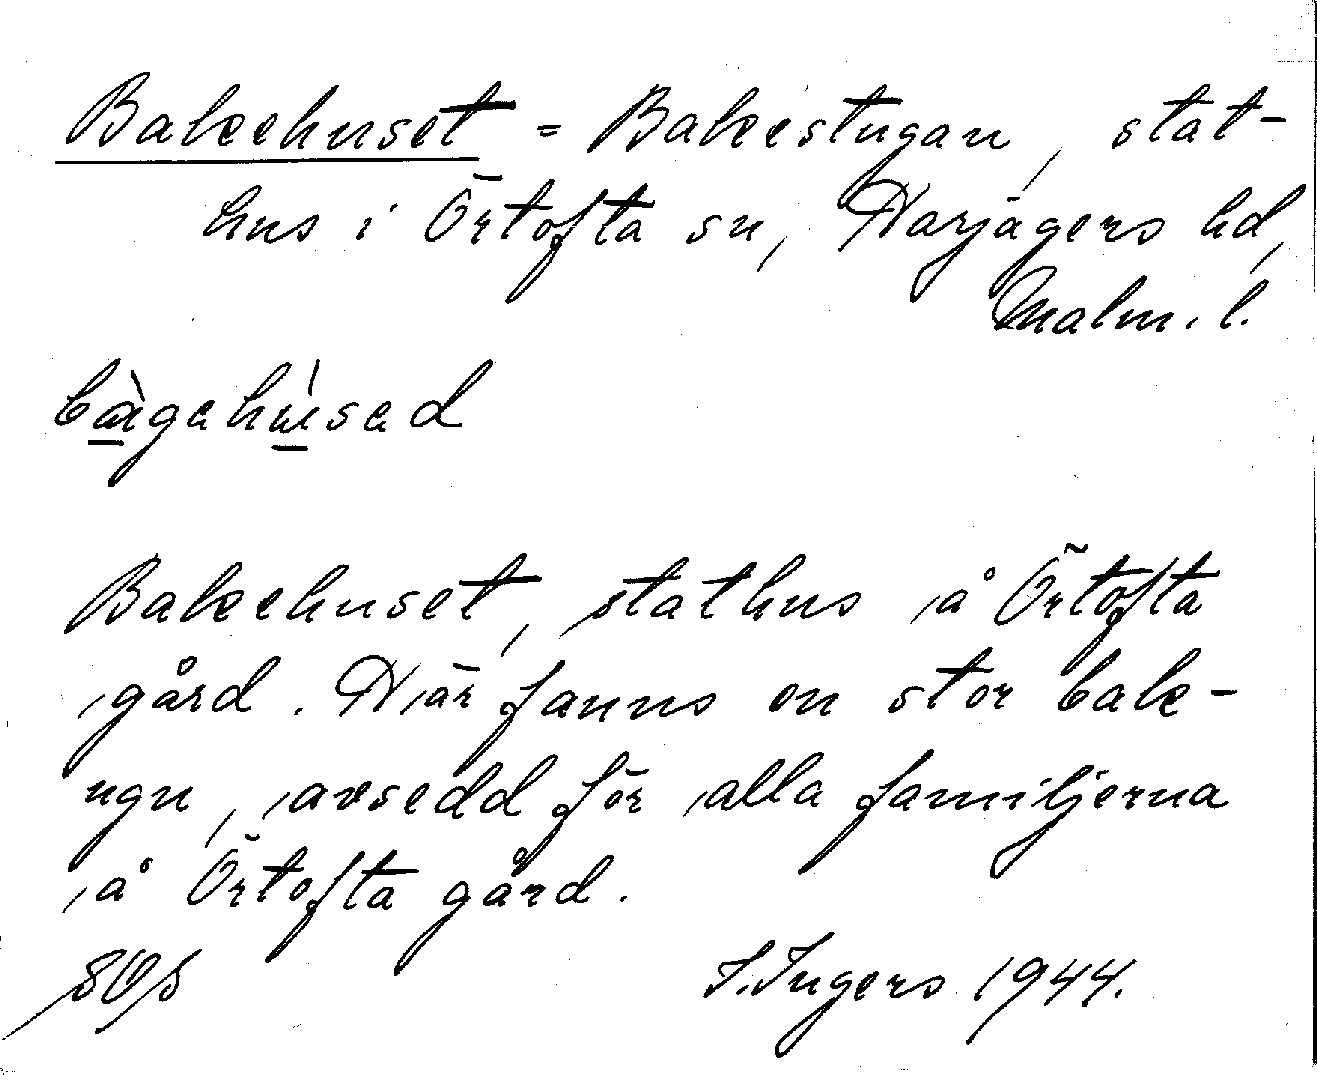 Bakehuset = Bakestugan, stat-
hus i Örtofta sn, Harjagers hd,
Malm. l.
bàgehúsed
Bakehuset, stathus å Örtofta
gård. Här fanns en stor bak-
ugn, avsedd för alla familjerna
å Örtofta gård.
I. Ingers 1944.